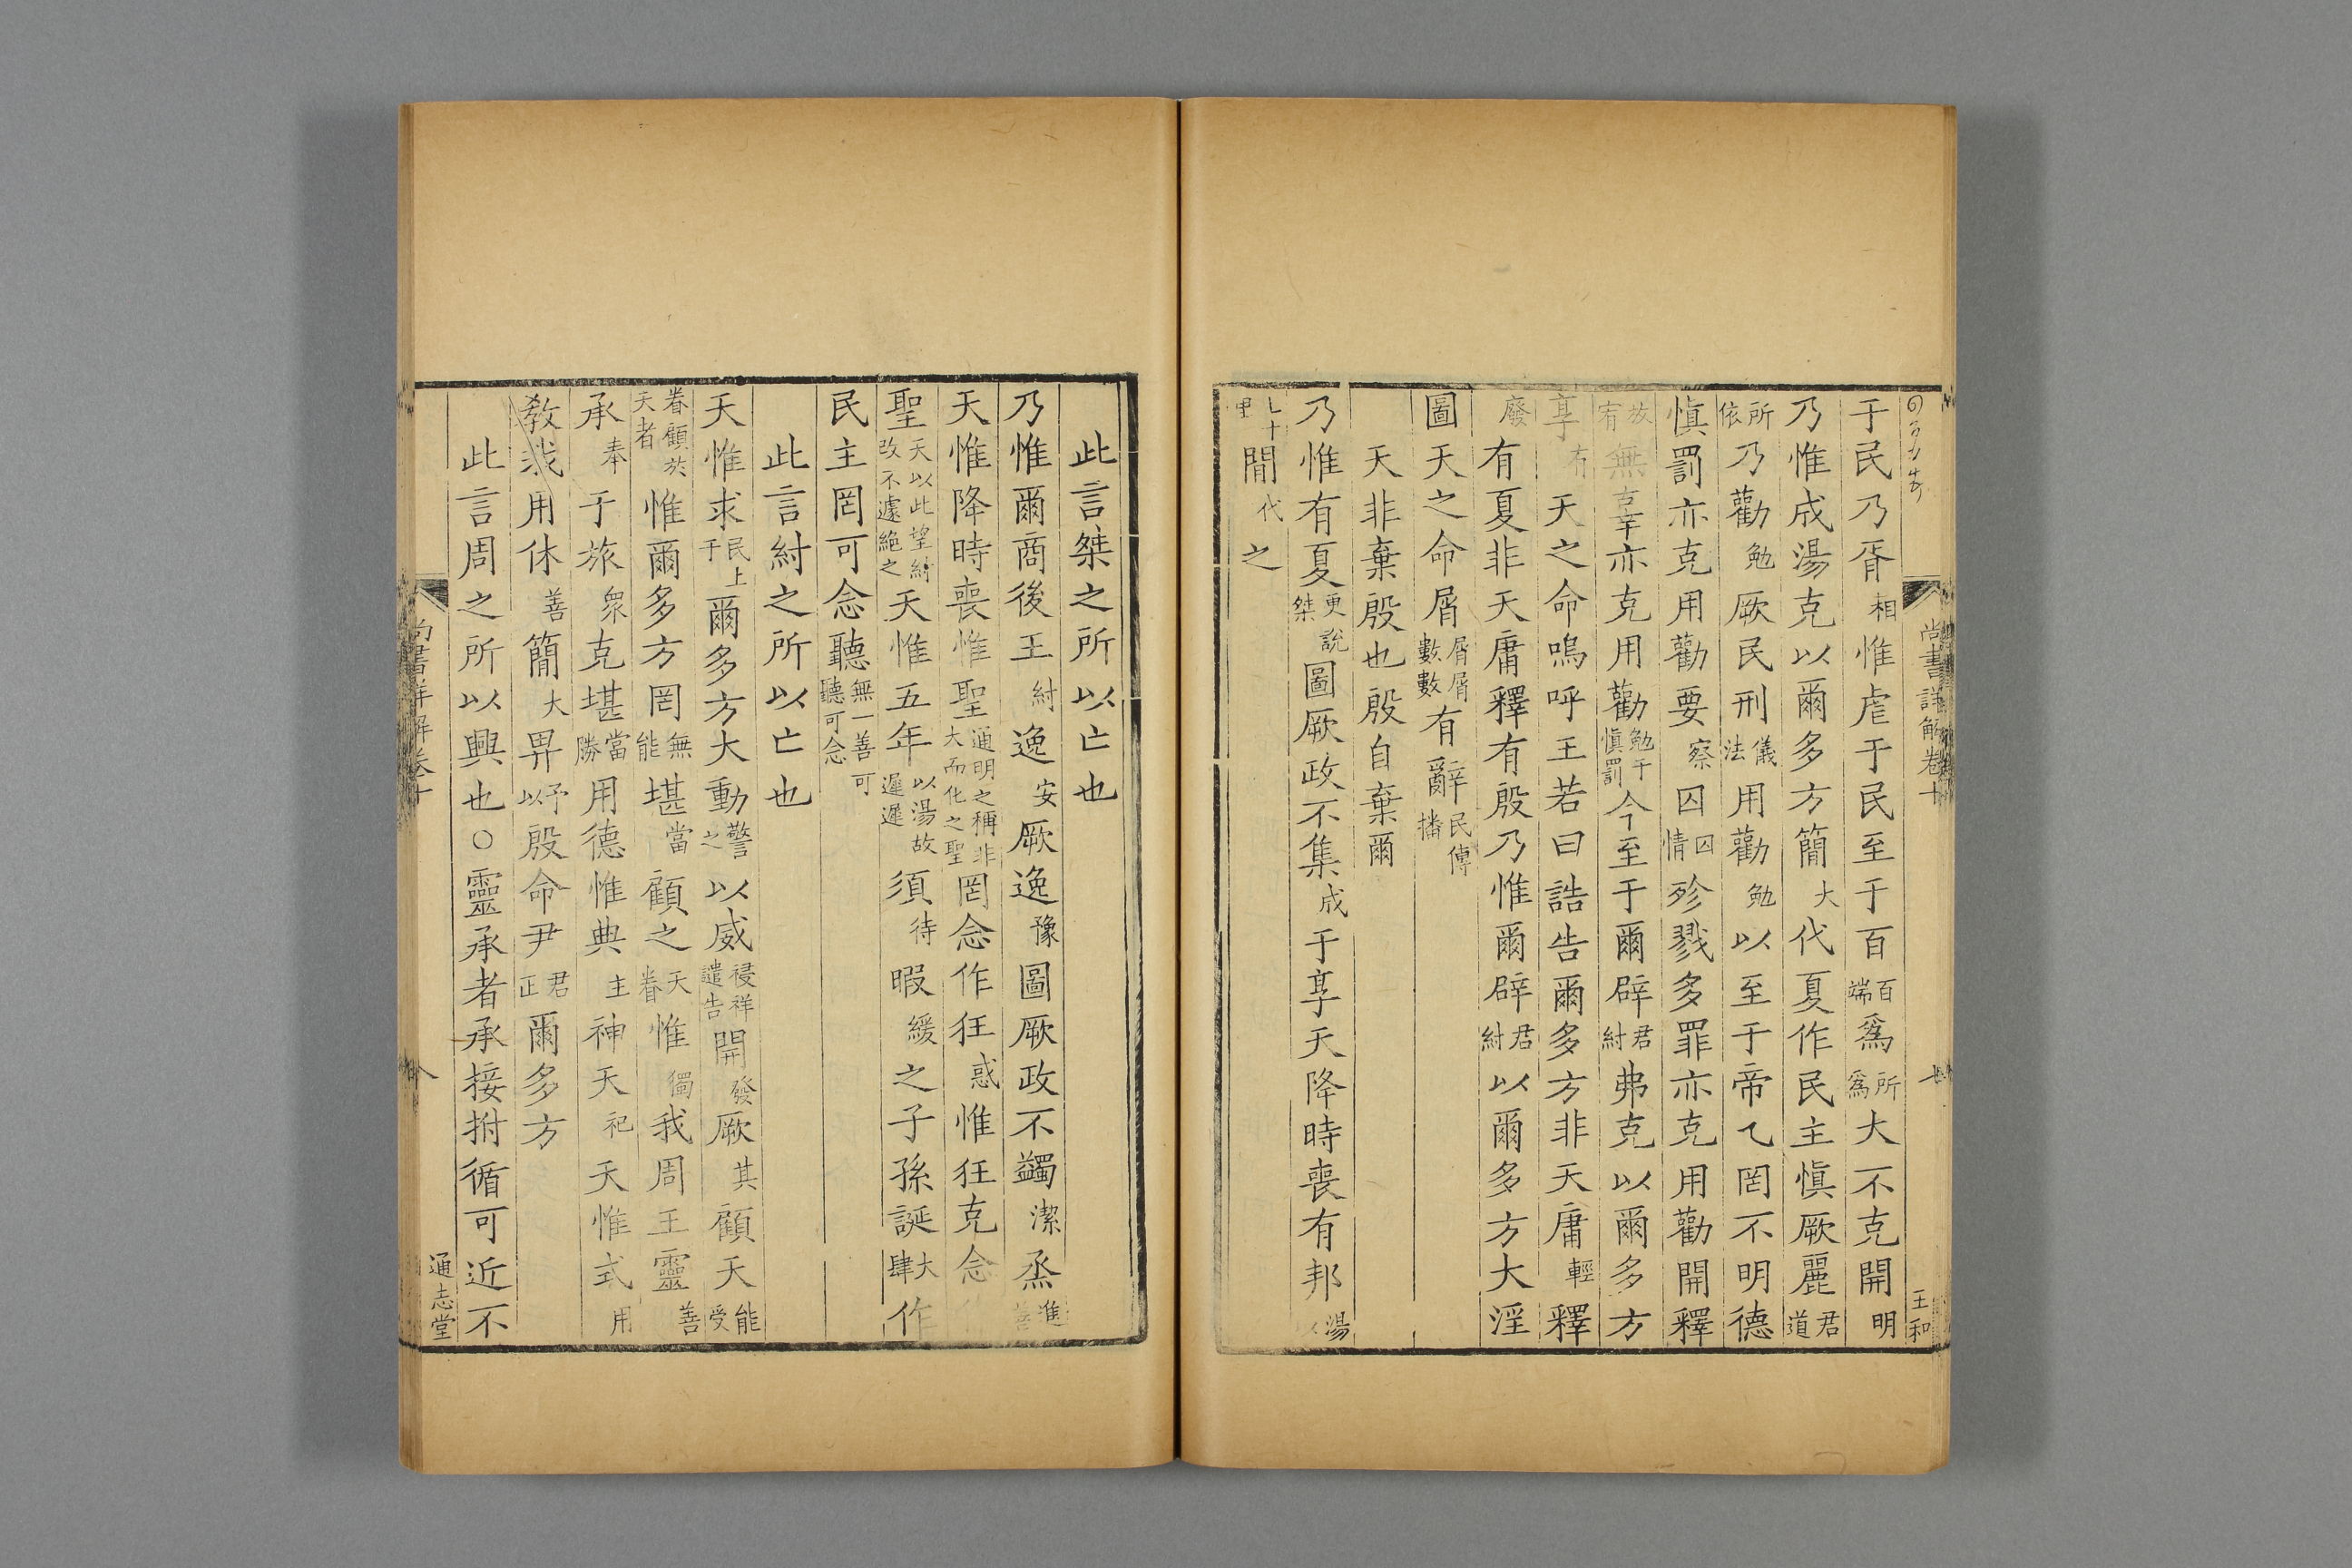 尚書詳解卷十
七
王和
于民乃胥相惟虐于民至于百百端爲所爲大不克開明
乃惟成湯克以爾多方簡大代夏作民主慎厥麗君道
所依乃勸勉厥民刑儀法用勸勉以至于帝乙罔不明德
慎罰亦克用勸要察囚囚情殄戮多罪亦克用勸開釋
放宥無辜亦克用勸勉于慎罰今至于爾辟君紂弗克以爾多方
享有天之命嗚呼王若曰誥告爾多方非天庸輕釋
廢有夏非天庸釋有殷乃惟爾辟君紂以爾多方大淫
圖天之命屑屑屑數數有辭民傳播
天非棄殷也殷自棄爾
乃惟有夏更說桀圖厥政不集成于享天降時喪有邦湯以
間代之
此言桀之所以亡也
乃惟爾商後王紂逸安厥逸豫圖厥政不蠲潔烝進善
天惟降時喪惟聖通明之稱非大而化之聖罔念作狂惑惟狂克念作
聖天以此望紂改不遽絕之天惟五年以湯故遲遲須待暇緩之子孫誕大肆作
民主罔可念聽無一善可聽可念
此言紂之所以亡也
天惟求民上于爾多方大動警之以威祲祥譴告開發厥其顧天能受
眷顧於天者惟爾多方罔無能堪當顧之天眷惟獨我周王靈善
承奉于旅眾克堪當勝用德惟典主神天祀天惟式用
教我用休善簡大畀予以殷命尹君正爾多方
此言周之所以興也○靈承者承接拊循可近不
尚書詳解卷十
八
通志堂